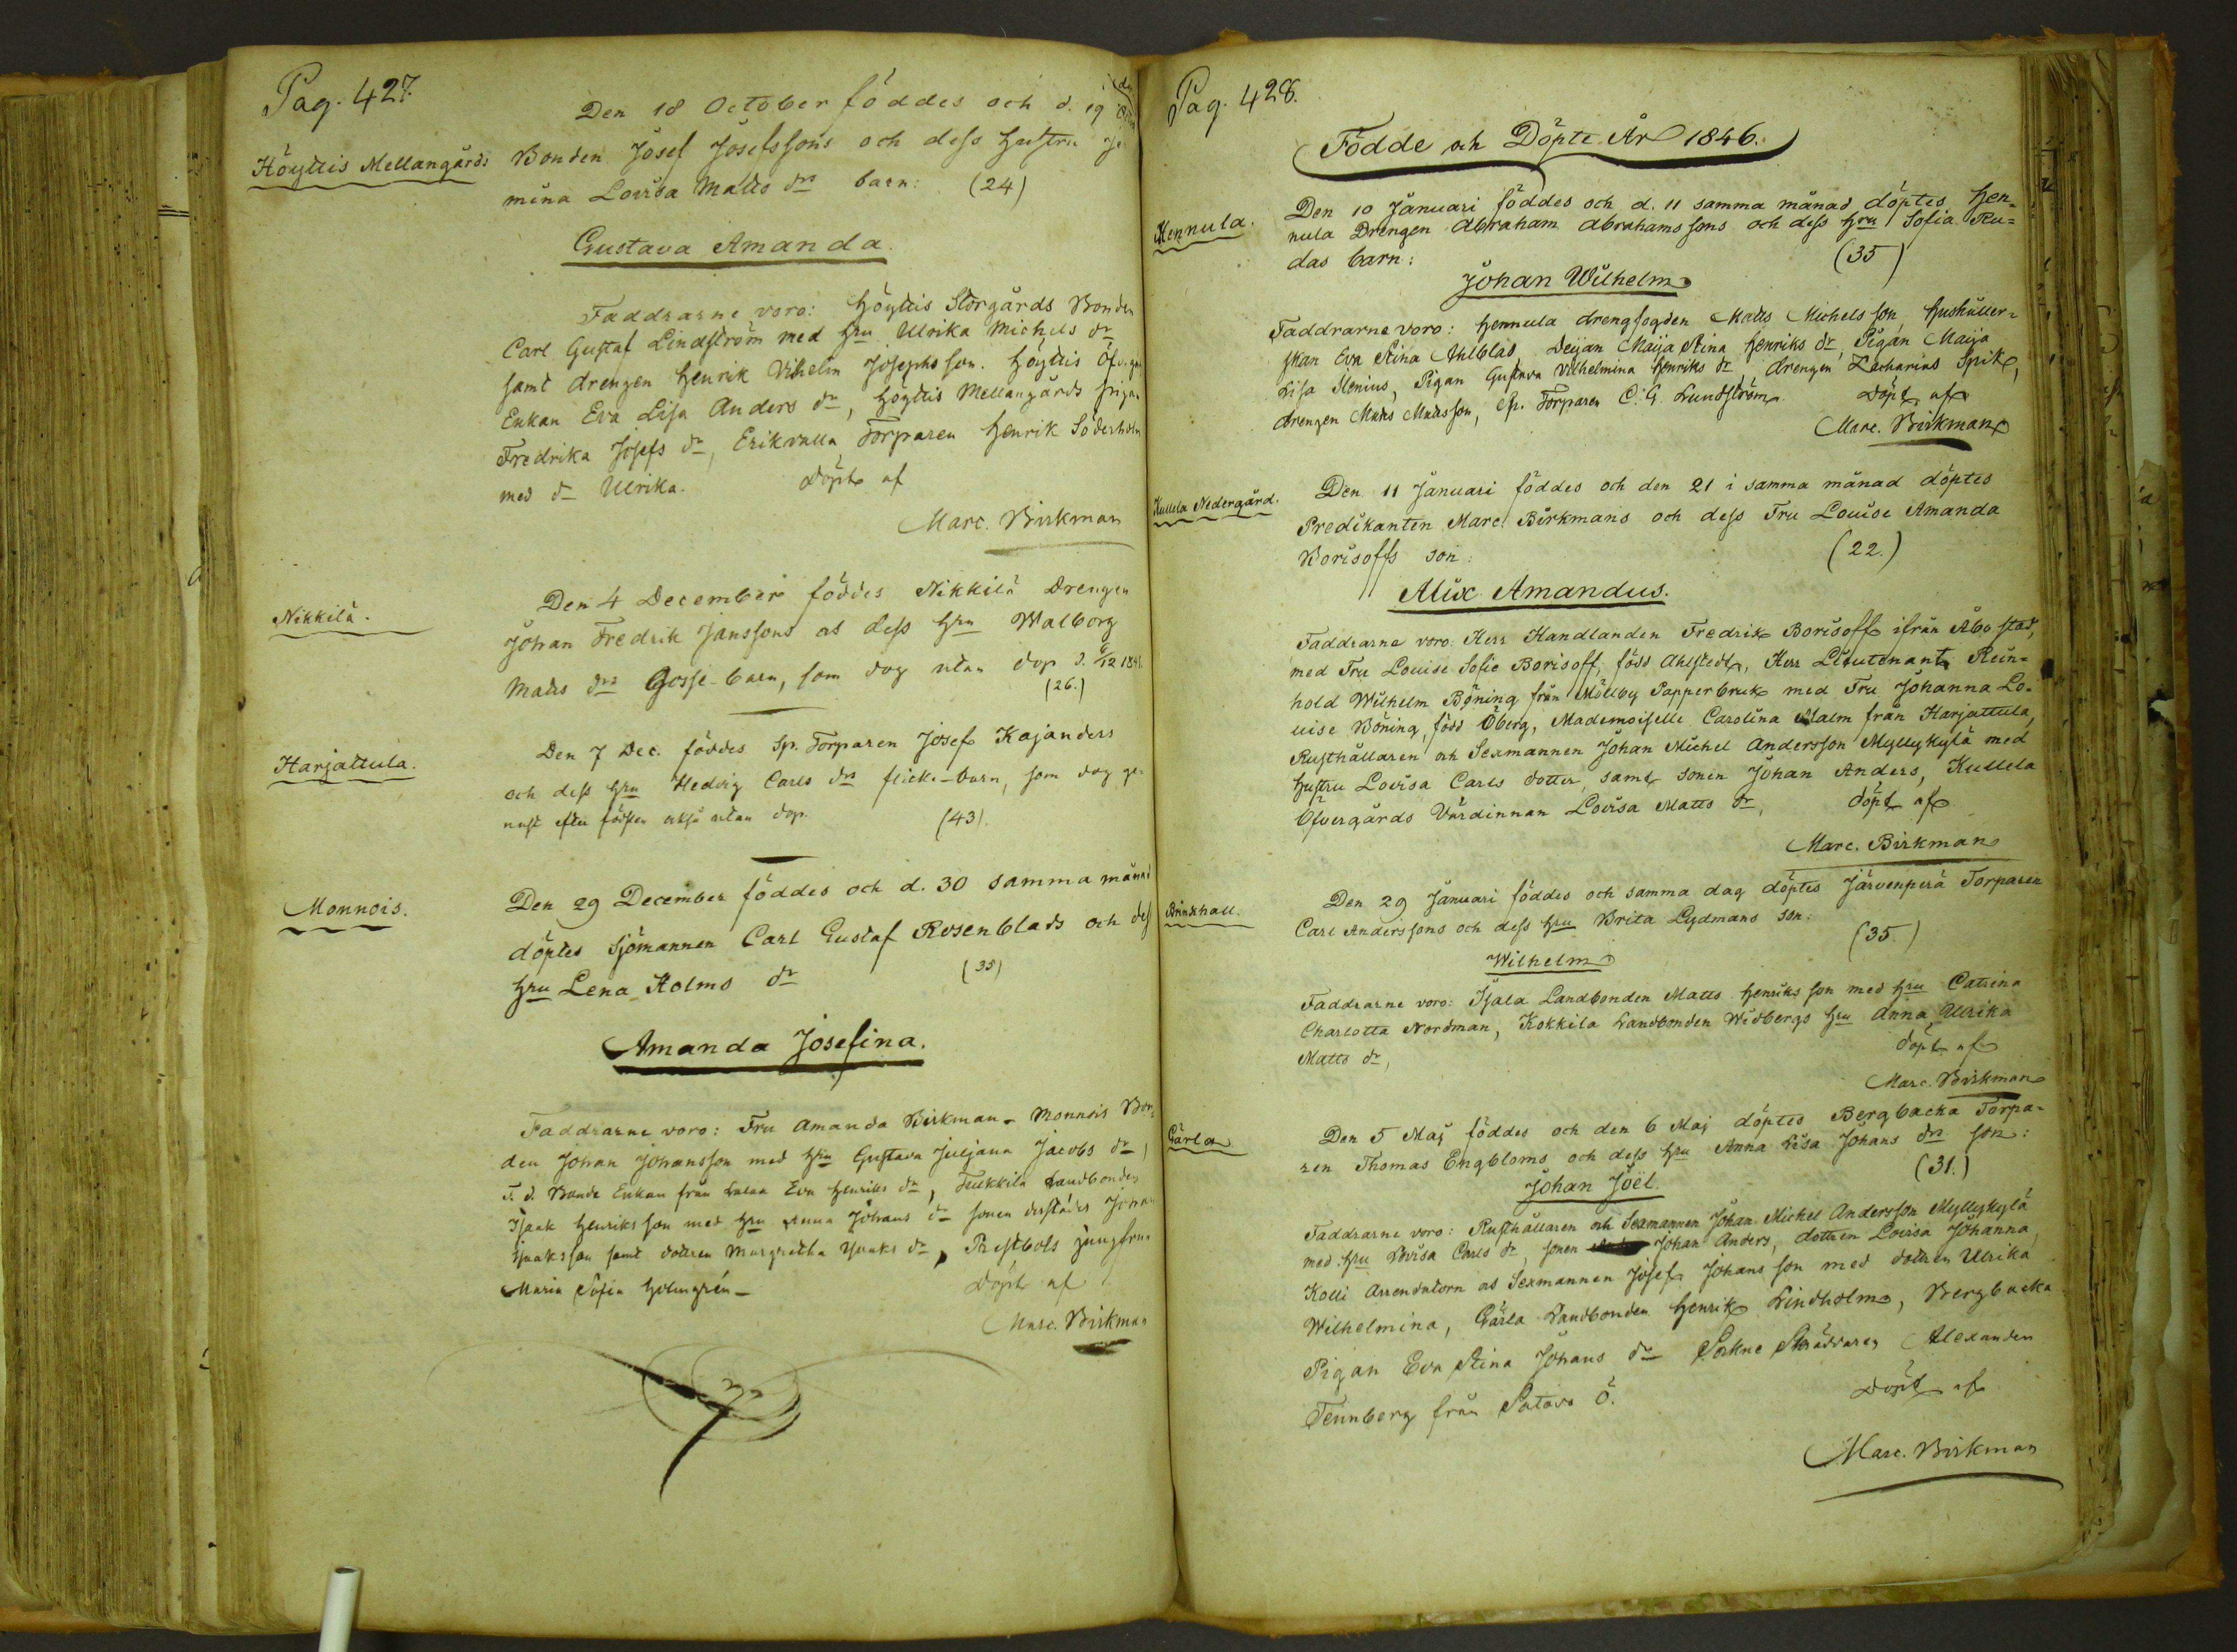 Pag. 427.
Den 18 October föddes och d. 19
Höyttis Mellangårds
Bonden Josef Josefssons och dess hustru
mina Lovisa Matts drs barn: (24)
Gustava Amanda.
Faddrarne voro: Höyttis Storgårds Bonden
Carl Gustaf Lindström med hru Ulrika Michels dr
samt drengen Henrik Vilhelm Josephsson. Höyttis
Enkan Eva Lisa Anders dr, Höyttis Mellangårds Pigan
Fredrika Josefs dr, Erikvalla Torparen Henrik Söderholm
med dr Ulrika. Döpt af
Marc. Birkman
Nikkilä.
Den 4 December föddes Nikkilä Drengen
Johan Fredrik Janssons os dess hru Walborg
Matts drs Gosse-barn, som dog utan dop d. 6/12 1845.
(26.)
Harjattula.
Den 7 Dec. föddes Sp. Torparen Josef Kajanders
och dess hru Hedvig Carls drs flicke-barn, som dog ge-
nast efter födsen också utan dop. (43).
Monnois.
Den 29 December föddes och d. 30 samma månad
döptes Sjömannen Carl Gustaf Rosenblads och dess
hru Lena Holms dr (35)
Amanda Josefina.
Faddrarne voro: Fru Amanda Birkman - Monnois Bon-
den Johan Johansson med hru Gustava Juljana Jacobs dr,
F. d. Bonde Enkan från Eva Henriks dr, Landbonden
Isaak Henriksson med hru Anna Johans dr sonen derstädes Johan
Isaaksson samt dottren Margretha Isaaks dr, Prestbols jungfrun
Maria Sofia Holmgrén - Döpt af
Marc. Birkman
Pag. 428.
Födde och Döpte År 1846.
Hennula.
Den 10 Januari föddes och d. 11 samma månad döptes Hen-
nula Drengen Abraham Abrahamssons och dess hru Sofia Ru-
das barn: (35)
Johan Wilhelm
Faddrarne voro: Hennula drengfogden Matts Michelsson, Hushåller-
skan Eva Stina Ahlblad, Deijan Maija Stina Henriks dr, Pigan Maija
Lisa Stenius, Pigan Gustava Vilhelmina Henriks dr, drengen Zacharias Spik,
drengen Matts Mattsson, Sp. Torparen C. G. Lundström. Döpt af
Marc. Birkman
Kullela Nedergård.
Den 11 Januari föddes och den 21 i samma månad döptes
Predikanten Marc. Birkmans och dess Fru Louise Amanda
Borisoffs son: (22.)
Alix Amandus.
Faddrarne voro: Herr Handlanden Fredrik Borisoff ifrån Åbo stad,
med Fru Louise Sofie Borisoff, född Ahlstedt, Herr Lieutenant Rein-
hold Wilhelm Böning från Möllby Papperbruk med Fru Johanna Lo-
uise Böning, född Öberg, Mademoiselle Carolina Malm från Harjattula,
Rusthållaren och Sexmannen Johan Michel Andersson Myllykylä med
hustru Lovisa Carls dotter, samt sonen Johan Anders, Kullela
Öfvergårds Värdinnan Lovisa Matts dr, döpt af
Marc. Birkman
Brinkhall.
Den 29 Januari föddes och samma dag döptes Järvenperä Torparen
Carl Anderssons och dess hru Brita Lydmans son: (35.)
Wilhelm
Faddrarne voro: Isjala Landbonden Matts Henriksson med hru Catrina
Charlotta Nordman, Kokkila Landbonden Widbergs hru Anna Ulrika
Matts dr, döpt af
Marc. Birkman
Gärla
Den 5 Maj föddes och den 6 Maj döptes Bergbacka Torpa-
ren Thomas Engbloms och dess hru Anna Lisa Johans drs son:
(31.)
Johan Joël.
Faddrarne voro: Rusthållaren och Sexmannen Johan Michel Andersson Myllykylä
med hru Lovisa Carls dr, sonen Johan Anders, dottren Lovisa Johanna,
Kolli Arrendatorn os Sexmannen Josef Johansson med dottren Ulrika
Wilhelmina, Gärla Landbonden Henrik Lindholm, Bergbacka
Pigan Eva Stina Johans dr Sokne Skräddaren Alexander
Tennberg från Satava ö. Döpt af
Marc. Birkman